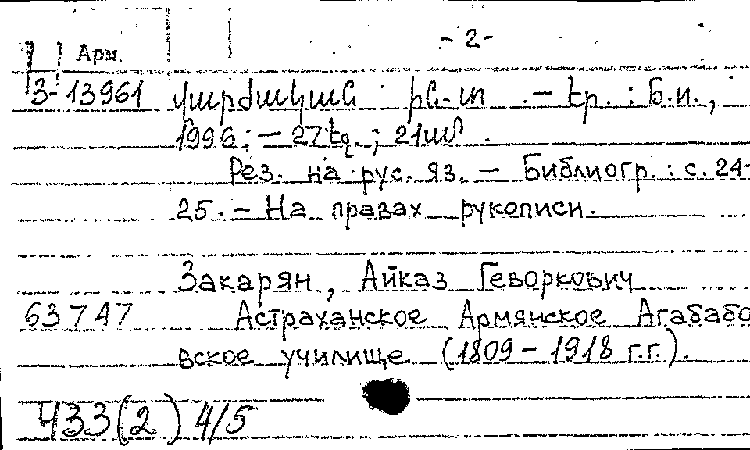 - 2 -
Арм.
3-13961 վարժական ին-տ. - Եր. : Б.и.,
1996. - 27 եջ. ; 21սմ.
Рез. на рус. яз. - Библиогр.: с. 24-
25. - На правах рукописи.
Закарян, Айказ Геворкович
63747 Астраханское Армянское Агабабо
вское училище (1809 - 1918 г.г.).
Ч33(2) 4/5